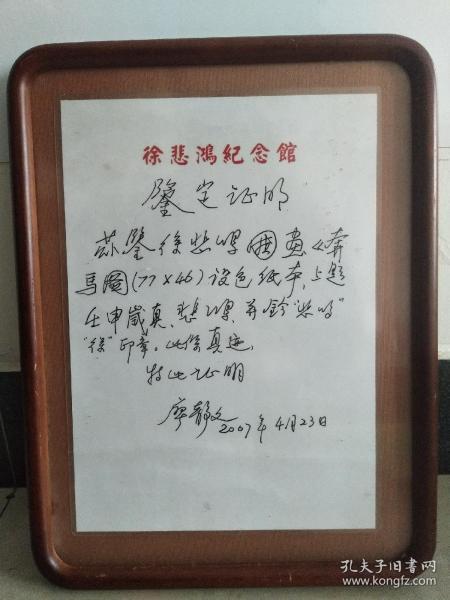 徐悲鸿纪念館
鑒定证明
兹鑒徐悲鸿国画《奔
马圖(77×46)设色纸本,上题
壬申歲真、悲鸿、并鈐"悲鸣"
"徐"印章。此係真迹,
特此证明
廖静文
2007年4月23日
孔夫子旧书网
www.kongfz.com